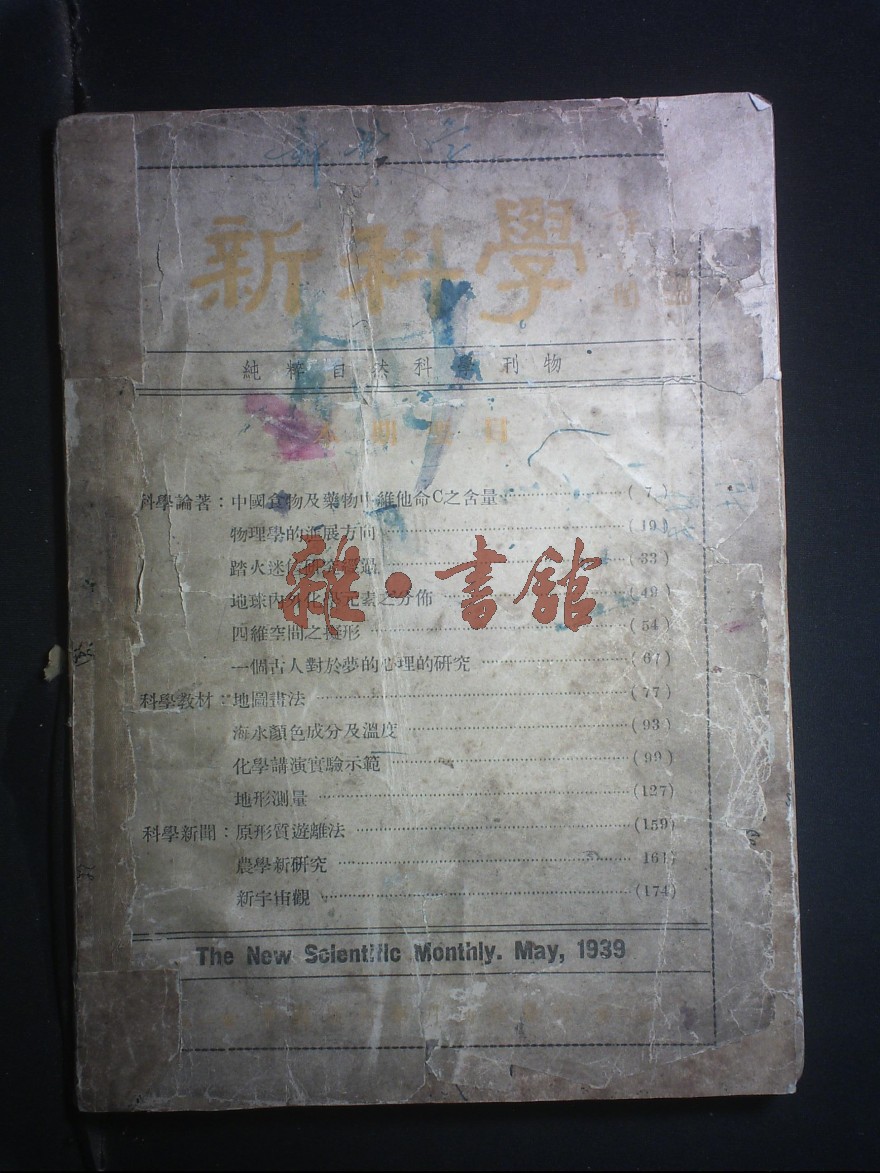 新科學
新科學
純粹自然科學刊物
本期要目
科學論著：中國食物及藥物中維他命C之含量……(7)
物理學的進展方向……(19)
踏火迷信……(33)
雜·書館
地球內外化學元素之分佈……(49)
四維空間之……形……(54)
一個古人對於夢的心理的研究……(67)
科學教材：地圖畫法……(77)
海水顏色成分及溫度……(93)
化學講演實驗示範……(99)
地形測量……(127)
科學新聞：原形質遊離法……(159)
農學新研究……161)
新宇宙觀……(174)
The New Scientific Monthly. May, 1939